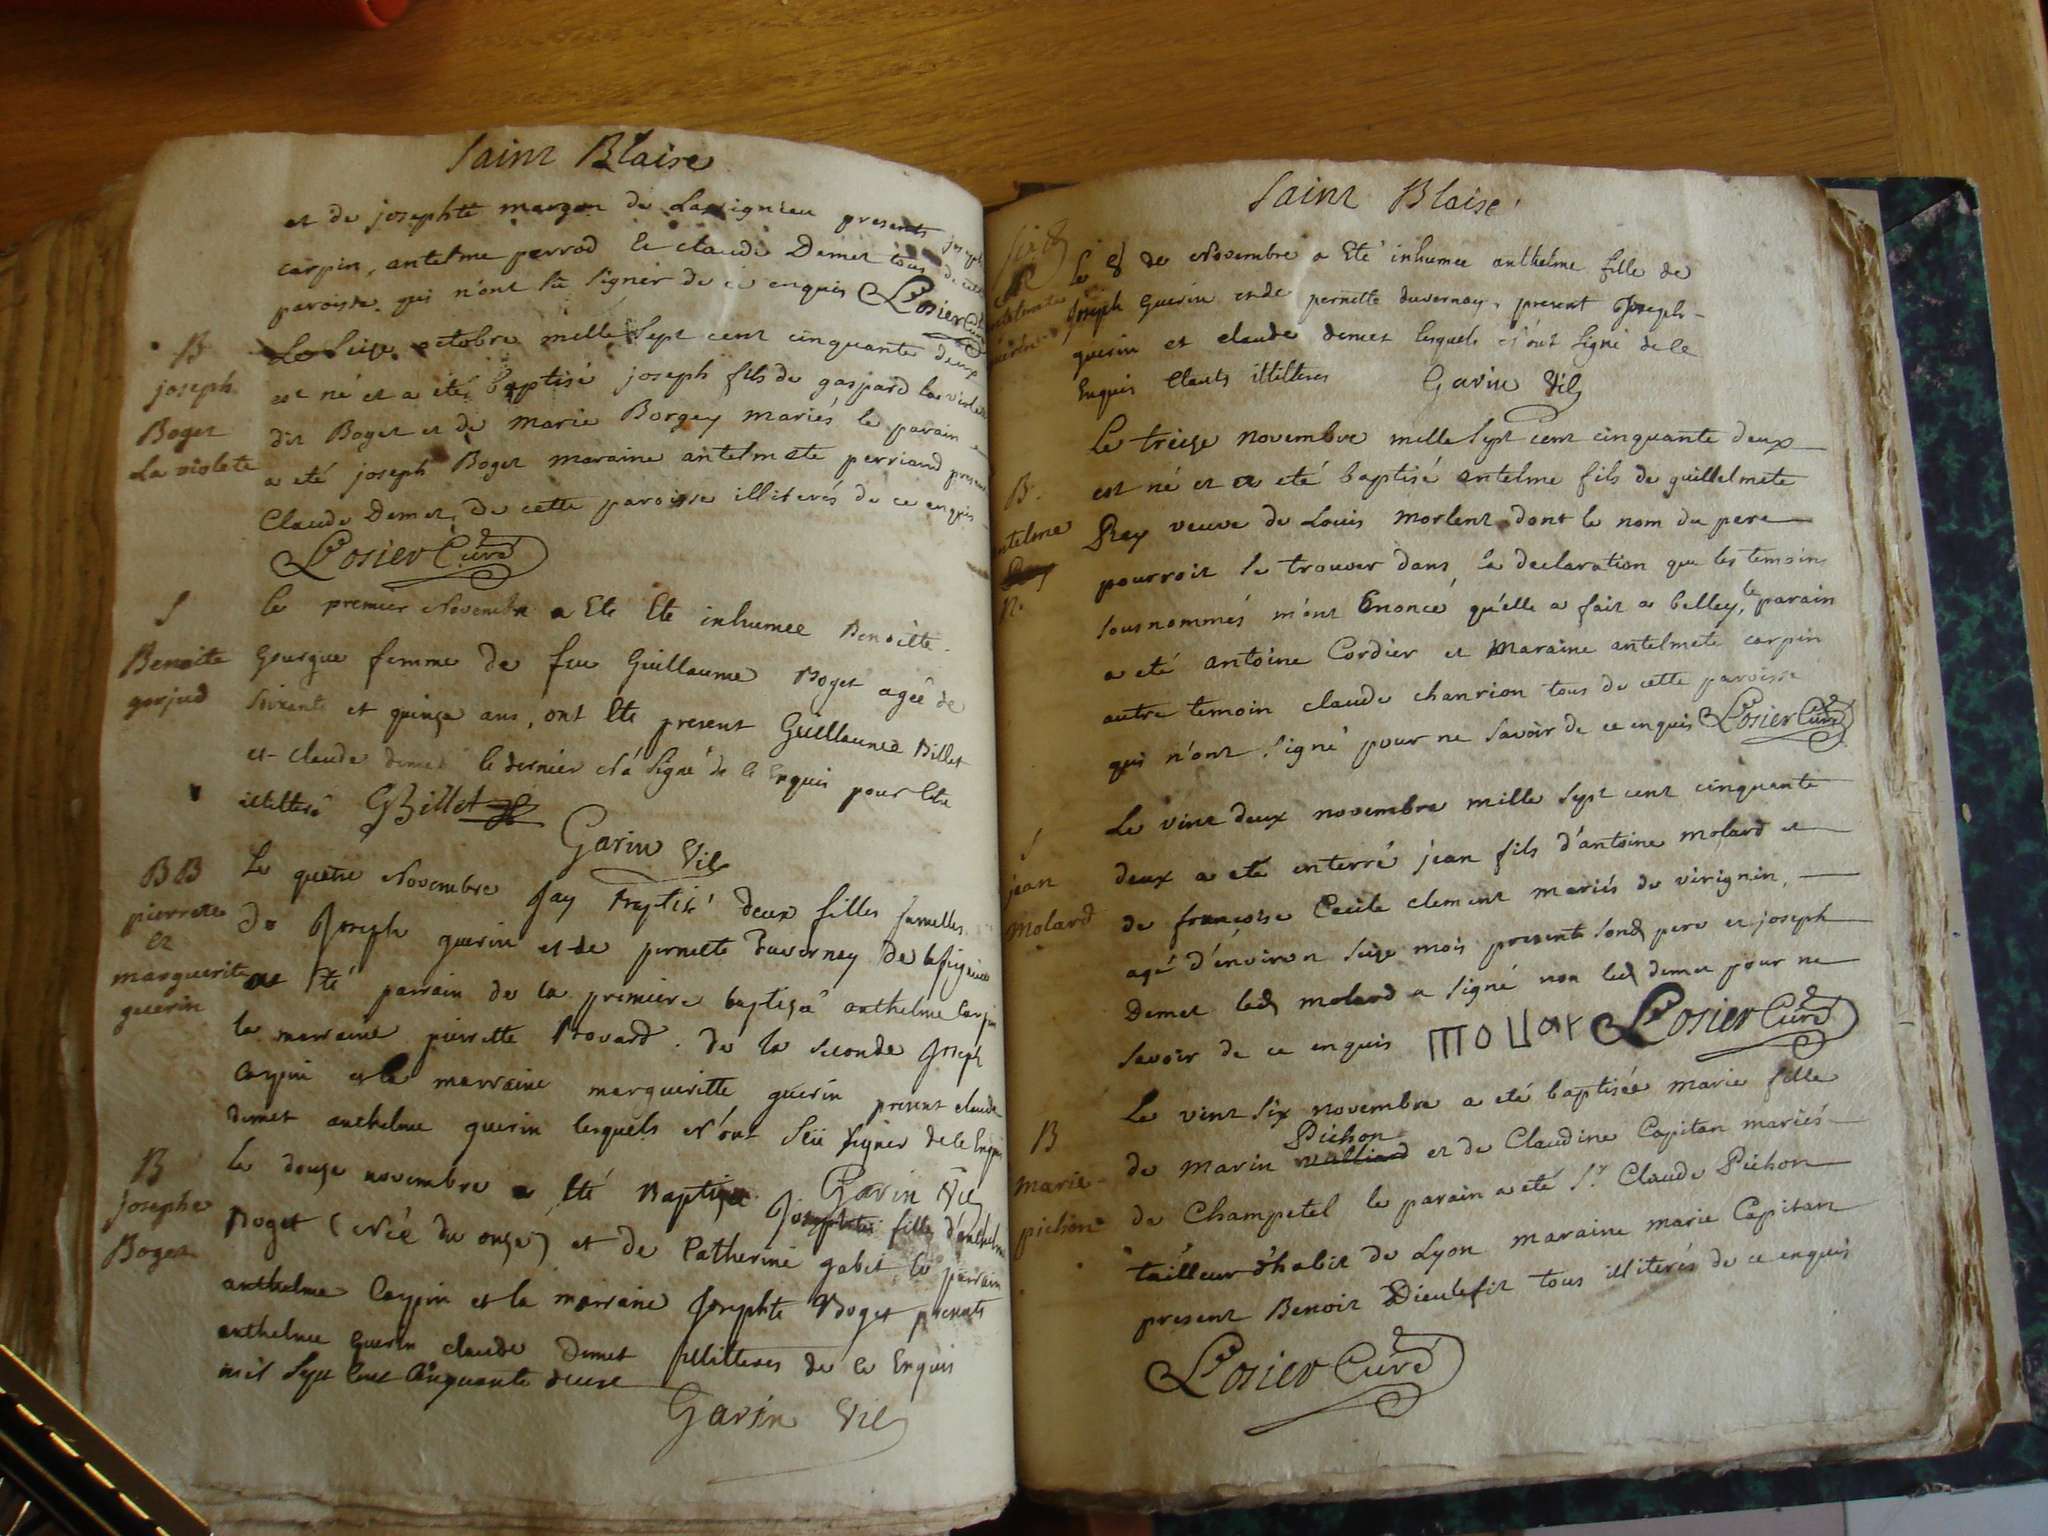 Saint Blaise
et de josephte marzon de Lassignieu presents joseph
carpin, antelme perrod et claude Demet tous de cette
paroisse qui n'ont sü signer de ce enquis Losier Curé
B
joseph
Boget
La violete
Le seize octobre mille sept cent cinquante deux
est né et a eté baptisé joseph fils de gaspard la violete
dit Boget et de marie Borgey mariés, le parain
a eté joseph Boget maraine antelmete perriand present
Claude Demet, de cette paroisse illiterés de ce enquis
Losier Curé
S
Benoite
gorjud
le premier Novembre a Ete Ete inhumee Benoitte
Gourgue femme de feu Guillaume Boget ageé de
soixente et quinze ans, ont Ete present Guillaume Billet
et claude demet le dernier N'a signé de ce Enquis pour Etre
illitteré GBillet
Garin Vic
BB
pierrete
et
marguerite
guerin
Le quatre Novembre Jay Baptisé deux filles jumelles
de Joseph guerin et de pernette Duverney de
at Eté parrain de la premiere baptisée anthelme Carpin
la marraine pierrette Bovard. de la seconde Joseph
Carpin et la marraine margueritte guerin present claude
demet anthelme guerin lesquels N'ont Seü signer de ce Enquis
Garin Vic
B
josephe
Boget
Le douze novembre a Eté Baptisée Josephte fille d'anthelme
Boget (Née du onze) et de Catherine gabet le parrain
anthelme Carpin et la marraine Josephte Boget presents
anthelme guerin claude Demet Illitteres de ce Enquis
mil sept Cent Cinquante deux
Garin Vic
Saint Blaise
Le 8 de Novembre a Eté inhumee anthelme fille de
Joseph Guerin et de pernette duvernay, present Joseph
guerin et claude demet lesquels N'ont signé de ce
Enquis Etants illitteres Garin Vic
B.
antelme
Rey
N.
Le treize novembre mille sept cent cinquante deux
est né et a eté baptisé antelme fils de guillelmete
Rey veuve de Louis Morlent dont le nom du pere
pourroit se trouver dans la declaration que les temoins
sousnommés m'ont Enoncé qu'elle a fait a belley, le parain
a eté antoine Cordier et Maraine antelmete carpin
autre temoin claude chanrion tous de cette paroisse
qui n'ont signé pour ne savoir de ce enquis Losier Curé
S
jean
Molard
Le vint deux novembre mille sept cent cinquante
deux a eté enterré jean fils d'antoine molard et
de françoise Cecile clement mariés de virignin,
agé d'environ seize mois presents sond pere et joseph
Demet led molard a signé non led demet pour ne
savoir de ce enquis mollar Losier Curé
B
Marie
pichon
Le vint six novembre a eté baptisée marie fille
Pichon
de Marin valliard et de Claudine Capitan mariés
de Champetel le parain a eté Sr Claude Pichon
tailleur d'habit de Lyon maraine marie Capitan
present Benoit Dieulefit tous illiterés de ce enquis
Losier Curé